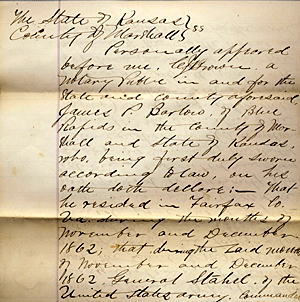 The State of Kansas } ss
County of Marshall }
Personally appeared
before me, C. J. Brown a
Notary Public in and for the
State and County aforesaid
James P. Barlow, of Blue
Rapids in the County of Mar
shall and State of Kansas,
who, being first duly sworn
according to law, on his
oath doth declare :- That
he resided in Fairfax Co.
Va. during the months of
November and December
1862; that during the said months
of November and December
1862. General Stahel, of the
United States army, commanded